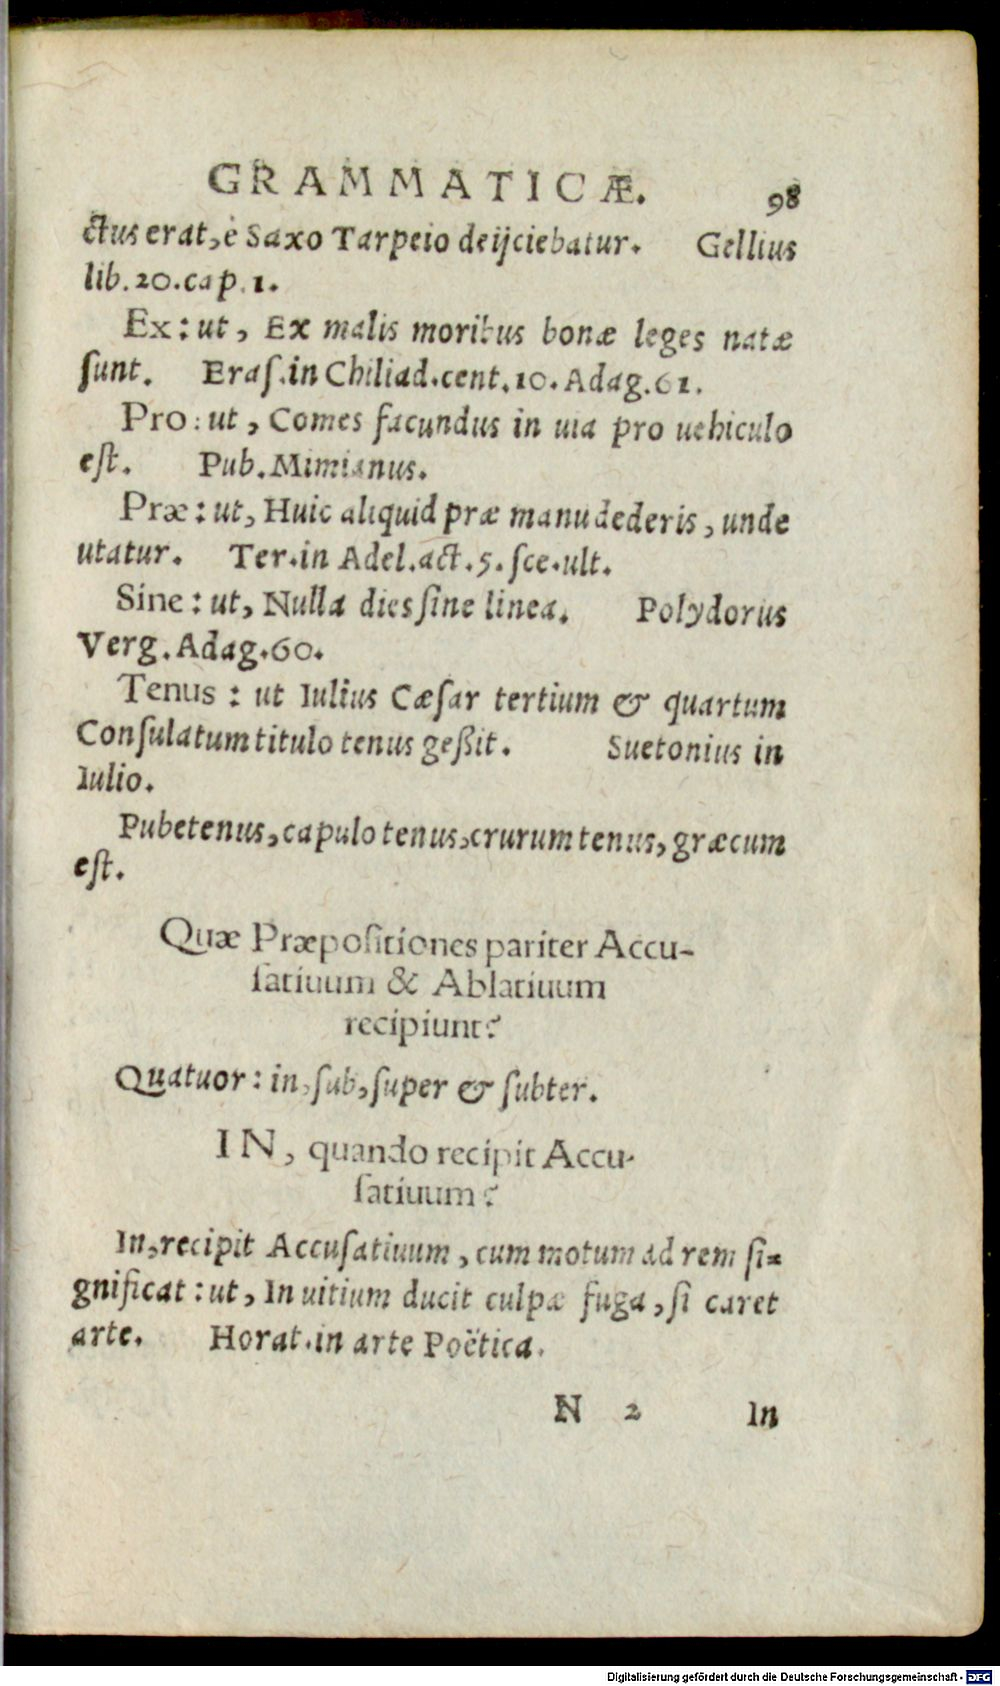 GRAMMATICÆ. 98
ctus erat, è Saxo Tarpeio deijciebatur. Gellius
lib. 20. cap. 1.
Ex: ut, Ex malis moribus bonæ leges natæ
ſunt. Eraſ. in Chiliad. cent. 10. Adag. 61.
Pro: ut, Comes facundus in uia pro uehiculo
eſt. Pub. Mimianus.
Præ: ut, Huic aliquid præ manu dederis, unde
utatur. Ter. in Adel. act. 5. ſce. ult.
Sine: ut, Nulla dies ſine linea. Polydorus
Verg. Adag. 60.
Tenus: ut Iulius Cæſar tertium & quartum
Conſulatum titulo tenus geßit. Suetonius in
Iulio.
Pubetenus, capulo tenus, crurum tenus, græcum
eſt.
Quæ Præpoſitiones pariter Accu-
ſatiuum & Ablatiuum
recipiunt?
Quatuor: in, ſub, ſuper & ſubter.
IN, quando recipit Accu-
ſatiuum?
In, recipit Accuſatiuum, cum motum ad rem ſi-
gnificat: ut, In uitium ducit culpæ fuga, ſi caret
arte. Horat. in arte Poëtica.
N 2 In
Digitalisierung gefördert durch die Deutsche Forschungsgemeinschaft - DFG